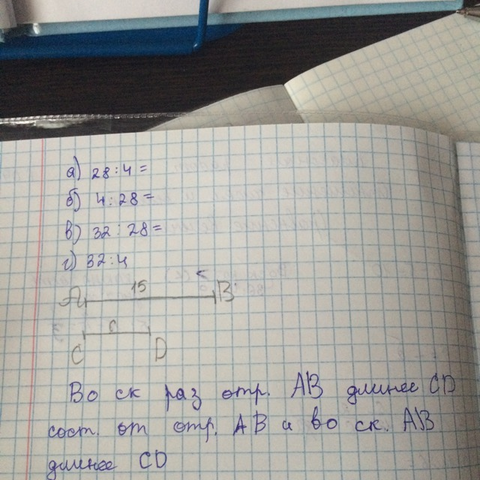 а) 28:4=
б) 4:28=
в) 32:28=
г) 32:4
15
A B
6
C D
Во ск раз отр. AB длинее CD
сост. от отр. AB и во ск. AB
длинее CD